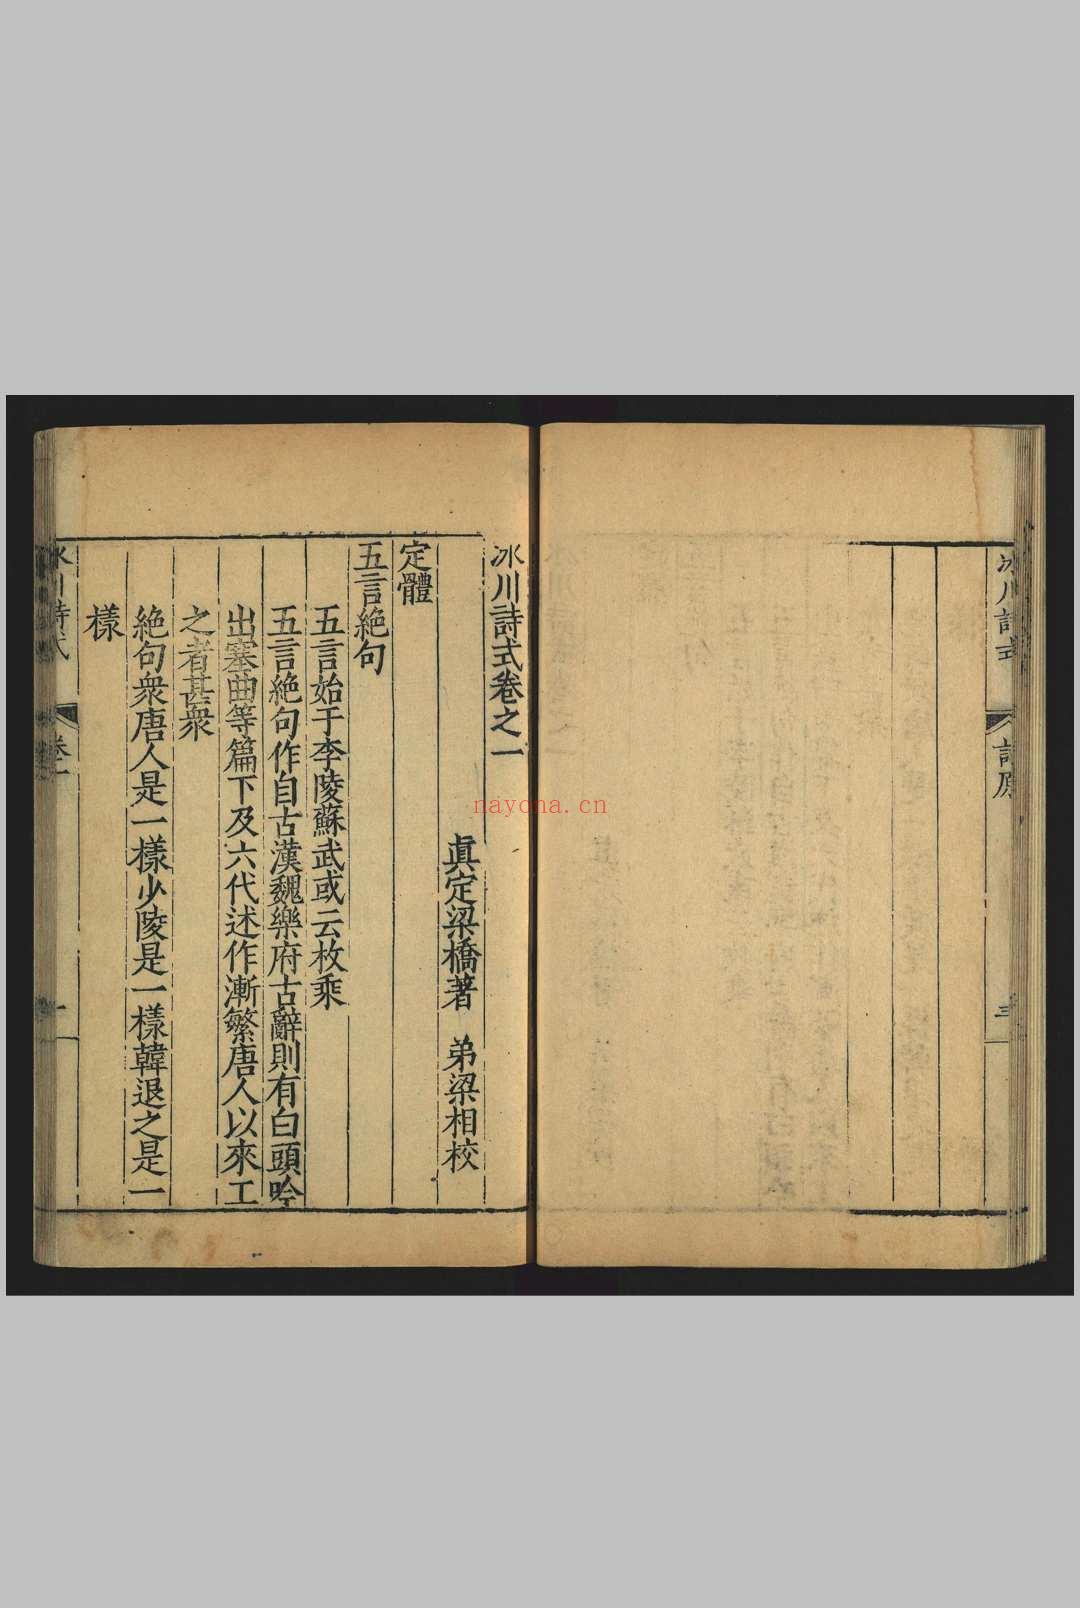 冰川詩式
詩原
三
冰川詩式卷之一
眞定梁橋著　弟梁相校
定體
五言絶句
五言始于李陵蘇武或云枚乘
五言絶句作自古漢魏樂府古辭則有白頭吟
出塞曲等篇下及六代述作漸繁唐人以來工
之者甚衆
絶句衆唐人是一樣少陵是一樣韓退之是一
樣
冰川詩式
卷一
一
nayona.cn